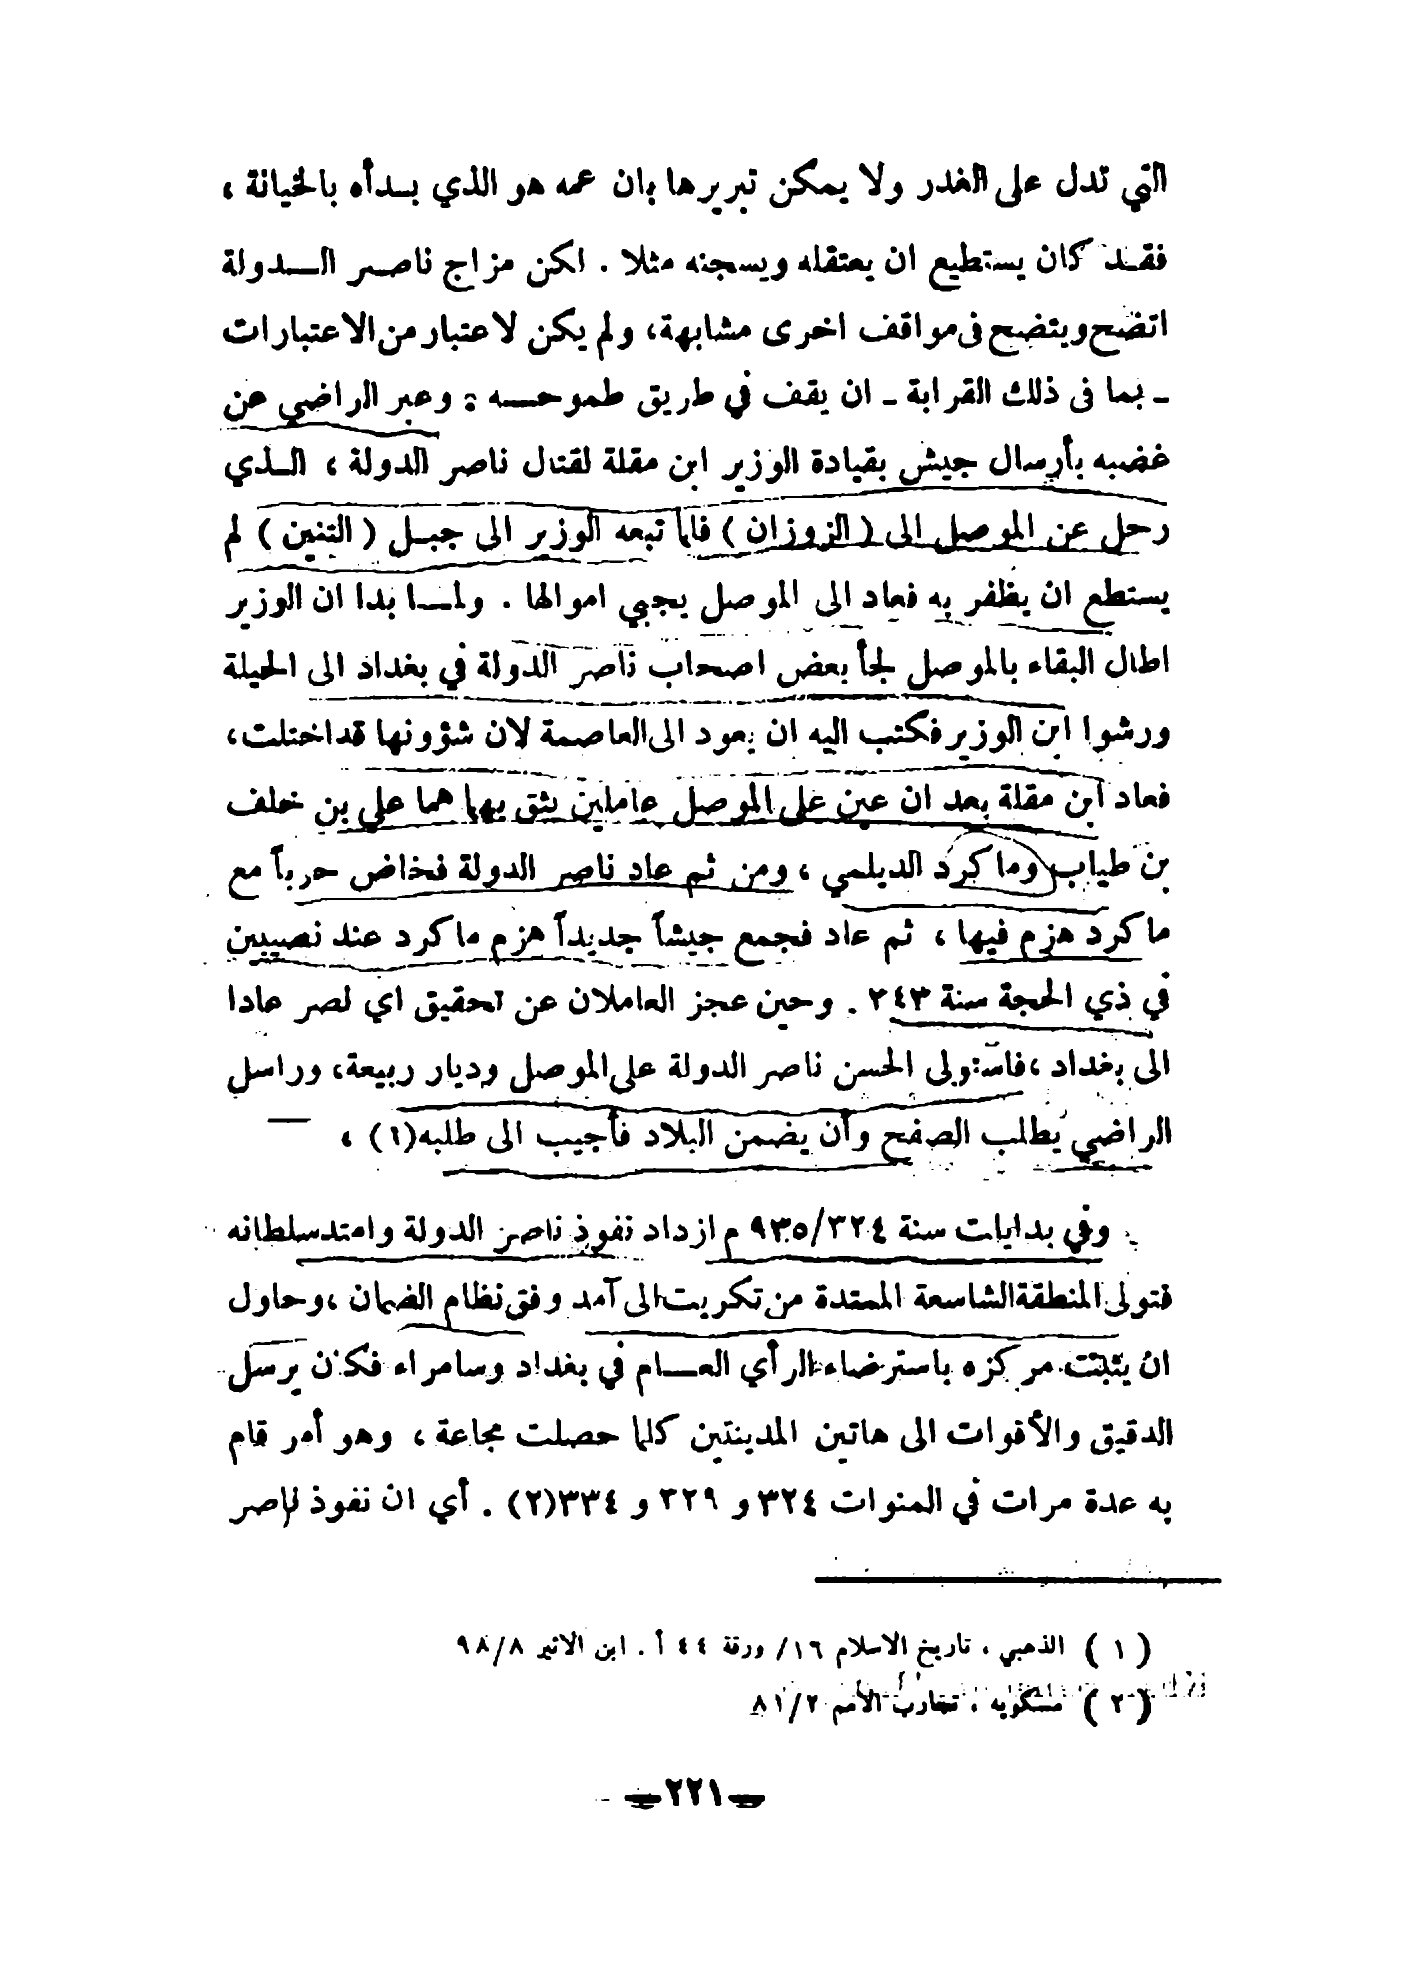 التي تدل على الغدر ولا يمكن تبريرها بان عمه هو الذي بـدأه بالخيانة ،
فقـد كان يستطيع ان يعتقله ويسجنه مثلا . لكن مزاج ناصر الــدولة
اتضح ويتضح في مواقف اخرى مشابهة، ولم يكن لاعتبار من الاعتبارات
ـ بما في ذلك القرابة ـ ان يقف في طريق طموحــه : وعبر الراضي عن
غضبه بأرسال جيش بقيادة الوزير ابن مقلة لقتال ناصر الدولة ، الـذي
رحل عن الموصل الى ( الزوزان ) فلما تبعه الوزير الى جبـل ( التنين ) لم
يستطع ان يظفر به فعاد الى الموصل يجبي اموالها . ولمــا بدا ان الوزير
اطال البقاء بالموصل لجأ بعض اصحاب ناصر الدولة في بغداد الى الحيلة
ورشوا ابن الوزير فكتب اليه ان يعود الى العاصمة لان شؤونها قد اختلت،
فعاد ابن مقلة بعد ان عين على الموصل عاملين يثق بهما هما علي بن خلف
بن طياب وما كرد الديلمي ، ومن ثم عاد ناصر الدولة فخاض حرباً مع
ما كرد هزم فيها ، ثم عاد فجمع جيشاً جديداً هزم ما كرد عند نصيبين
في ذي الحجة سنة ٢٤٣ . وحين عجز العاملان عن تحقيق اي نصر عادا
الى بغداد ، فاستولى الحسن ناصر الدولة على الموصل وديار ربيعة، وراسل
الراضي يطلب الصفح وأن يضمن البلاد فأجيب الى طلبه(١) ،
وفي بدايات سنة ٩٣٥/٣٢٤ م ازداد نفوذ ناصر الدولة وامتد سلطانه
فتولى المنطقة الشاسعة الممتدة من تكريت الى آمد وفق نظام الضمان ، وحاول
ان يثبت مركزه باسترضاء الرأي العــام في بغداد وسامراء فكان يرسل
الدقيق والأقوات الى هاتين المدينتين كلما حصلت مجاعة ، وهو أمر قام
به عدة مرات في السنوات ٣٢٤ و ٣٢٩ و ٣٣٤(٢) . أي ان نفوذ ناصر
( ١ ) الذهبي ، تاريخ الاسلام ١٦/ ورقة ٤٤ أ . ابن الاثير ٩٨/٨
( ٢ ) مسكويه ، تجارب الامم ٨١/٢
ـ٢٢١ـ